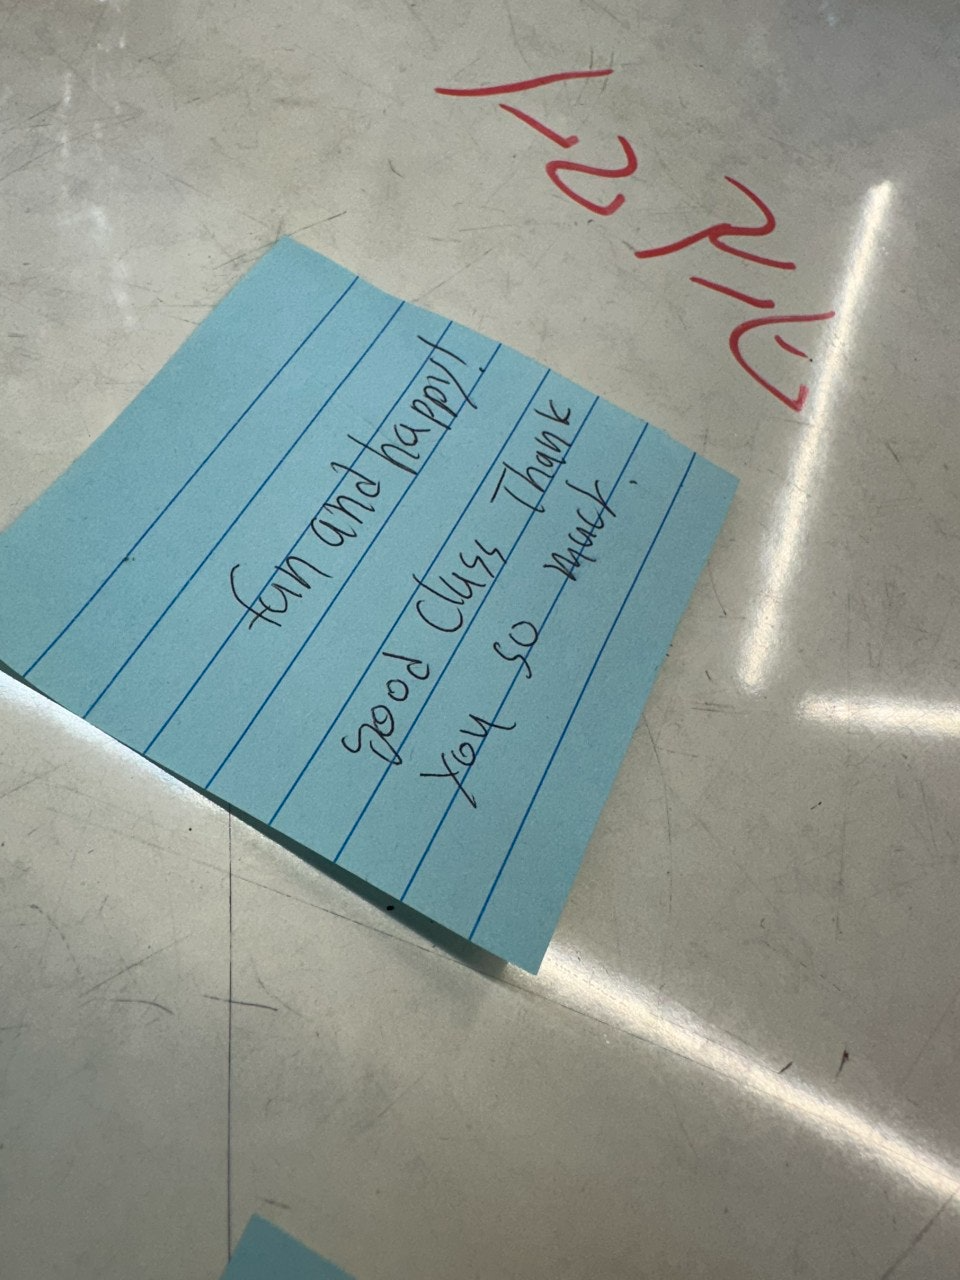 fun and happy!
good class Thank
you so much.